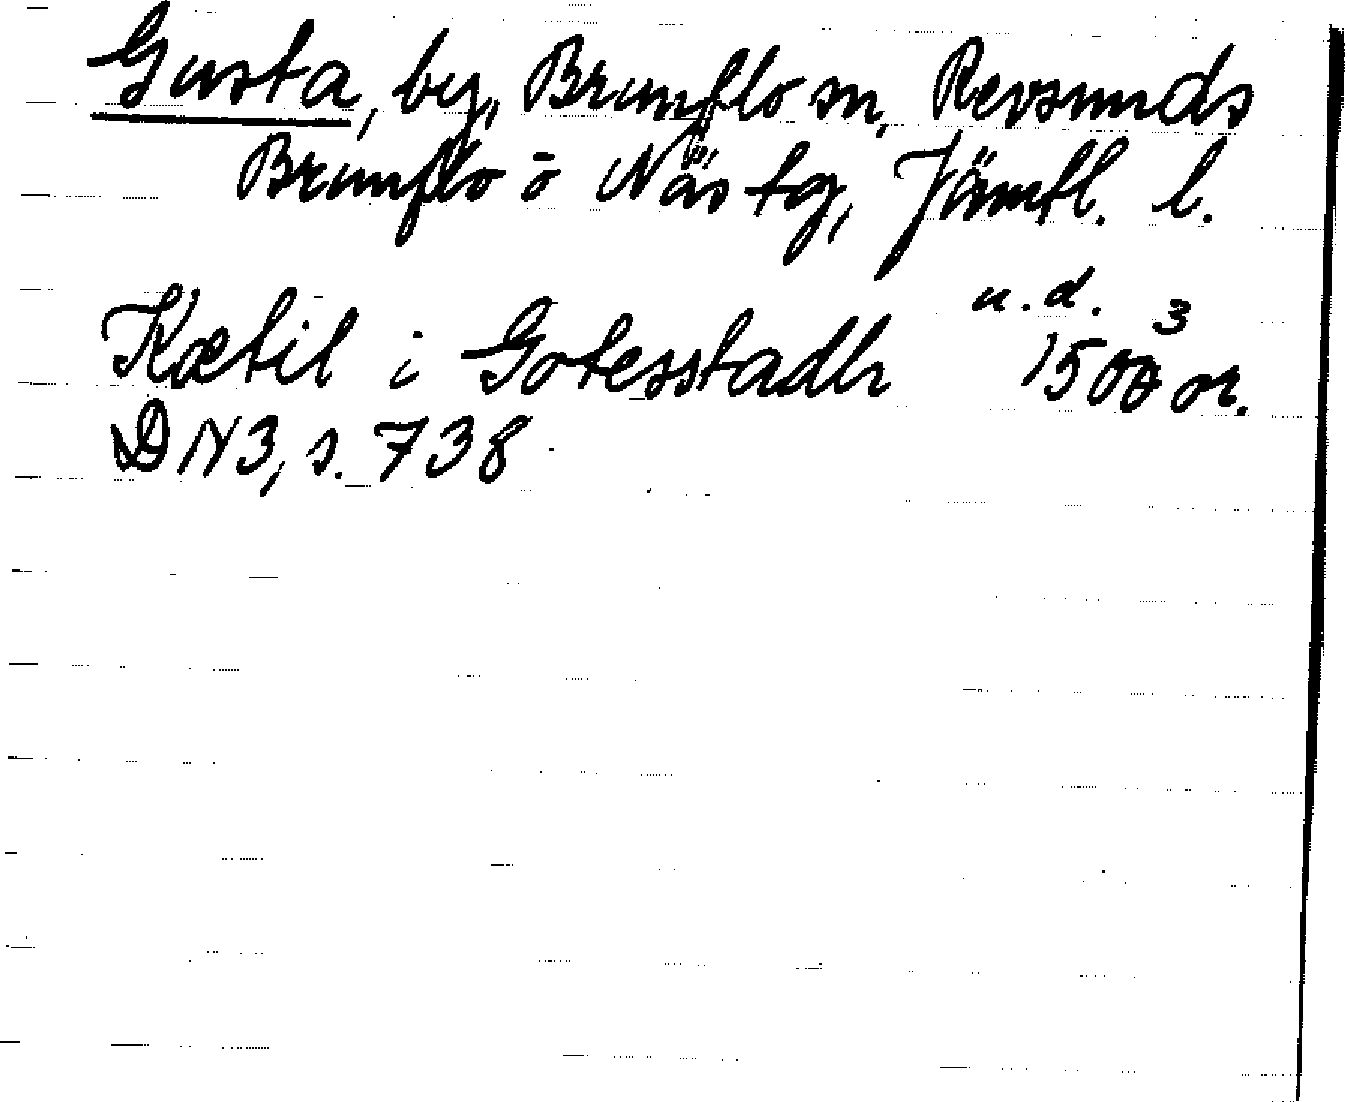 Gusta, by, Brunflo sn, Revsunds
Brunflo o Näs tg, Jämtl. l.
Kætil i Gotesstadh u.d. 1503 or.
DN 3, s. 738